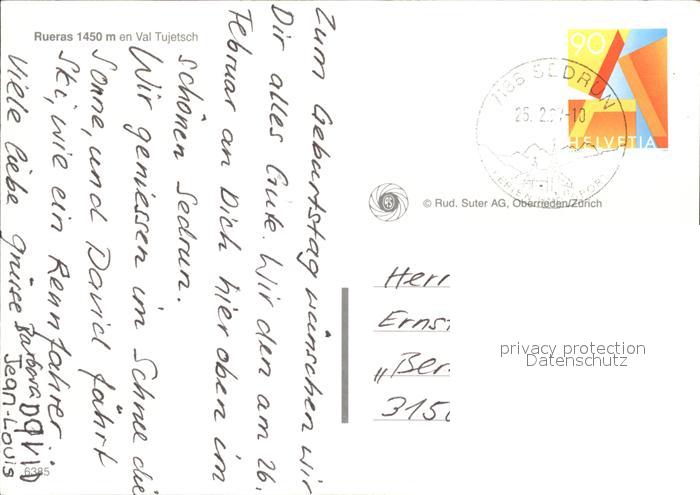 Rueras 1450 m en Val Tujetsch
Zum Geburtstag wünschen wir
Dir alles Gute. Wir denken am 26.
Februar an Dich hier oben im
schönen Sedrun.
Wir geniessen im Schnee die
Sonne, und David fährt
Ski, wie ein Rennfahrer
Viele liebe Grüsse Barbara
DAViD
Jean-Louis
6385
90
HELVETIA
SEDRUN
© Rud. Suter AG, Oberrieden/Zürich
Herr
Erns
„Ber
315
privacy protection
Datenschutz